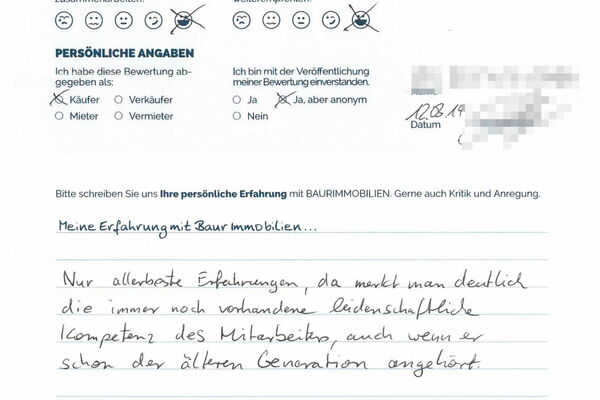 weiterempfehlen.
PERSÖNLICHE ANGABEN
Ich habe diese Bewertung ab-
gegeben als:
Käufer Verkäufer
Mieter Vermieter
Ich bin mit der Veröffentlichung
meiner Bewertung einverstanden.
Ja Ja, aber anonym
Nein
12.08.19
Datum
Bitte schreiben Sie uns Ihre persönliche Erfahrung mit BAURIMMOBILIEN. Gerne auch Kritik und Anregung.
Meine Erfahrung mit Baur Immobilien...
Nur allerbeste Erfahrungen, da merkt man deutlich
die immer noch vorhandene leidenschaftliche
Kompetenz des Mitarbeiters, auch wenn er
schon der älteren Generation angehört.